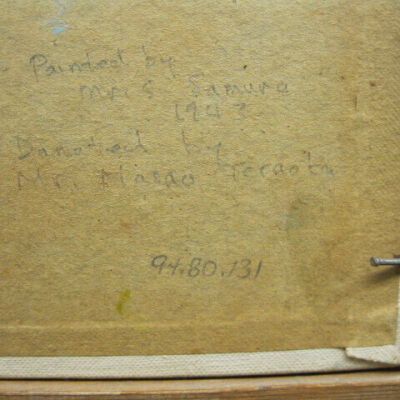 Painted by
Mr. S Samura
194?
Donated by
Mr. Masao Teraota
94.80.131